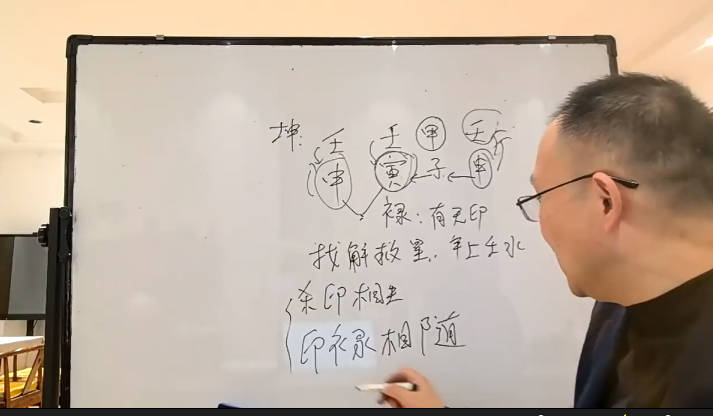 坤: 壬 壬 甲 壬
申 寅 子 申
禄: 有无印
找解救星. 年上壬水
杀印相生
印禄相随